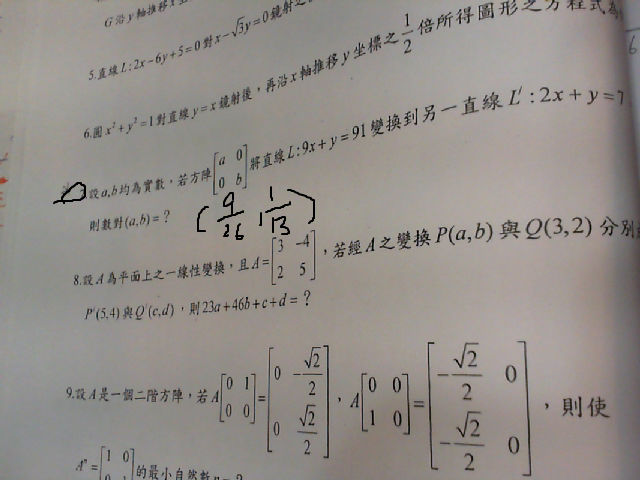 G沿y軸推移x
5.直線L:2x-6y+5=0對x-√3y=0鏡射之
6.圓x²+y²=1對直線y=x鏡射後，再沿x軸推移y坐標之1/2倍所得圖形之方程式為
設a,b均為實數，若方陣[a 0; 0 b]將直線L:9x+y=91變換到另一直線L':2x+y=7
則數對(a,b)=？
(9/26, 1/13)
8.設A為平面上之一線性變換，且A=[3 -4; 2 5]，若經A之變換P(a,b)與Q(3,2)分別
P'(5,4)與Q'(c,d)，則23a+46b+c+d=？
9.設A是一個二階方陣，若A[0 1; 0 0]=[0 -√2/2; 0 √2/2]，A[0 0; 1 0]=[-√2/2 0; -√2/2 0]，則使
Aⁿ=[1 0的最小自然數